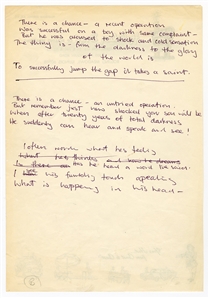 There is a chance - a recent operation
was successful on a boy with same complaint -
But he was exposed to shock and cold sensation
The thing is - from the darkness to the glory
of the world is
To successfully jump the gap it takes a saint.
There is a chance - an untried operation.
But remember just how shocked you son will be
when after twenty years of total darkness
He suddenly can hear and speak and see!
I often wonder what he's feeling
What he's thinking and how he dreams
Is there has he heard a word I've said
I see his fumbling touch speaking
What is happening in his head -